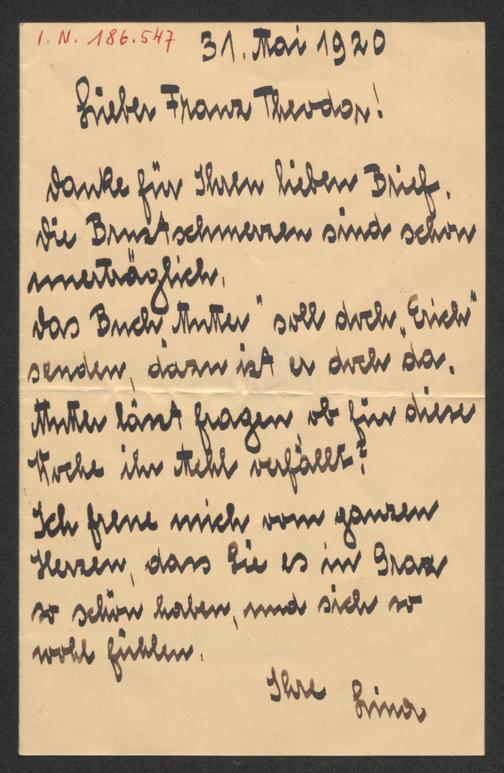 I. N. 186.547
31. Mai 1920
Lieber Franz Theodor!
Danke für Ihren lieben Brief.
Die Brustschmerzen sind schon
unerträglich.
Das Buch „Mutter" soll doch „Erich"
senden, dazu ist er doch da.
Mutter lässt fragen ob für diese
Woche ihr Mehl verfällt?
Ich freue mich vom ganzen
Herzen, dass Sie es in Graz
so schön haben, und sich so
wohl fühlen.
Ihre Lina